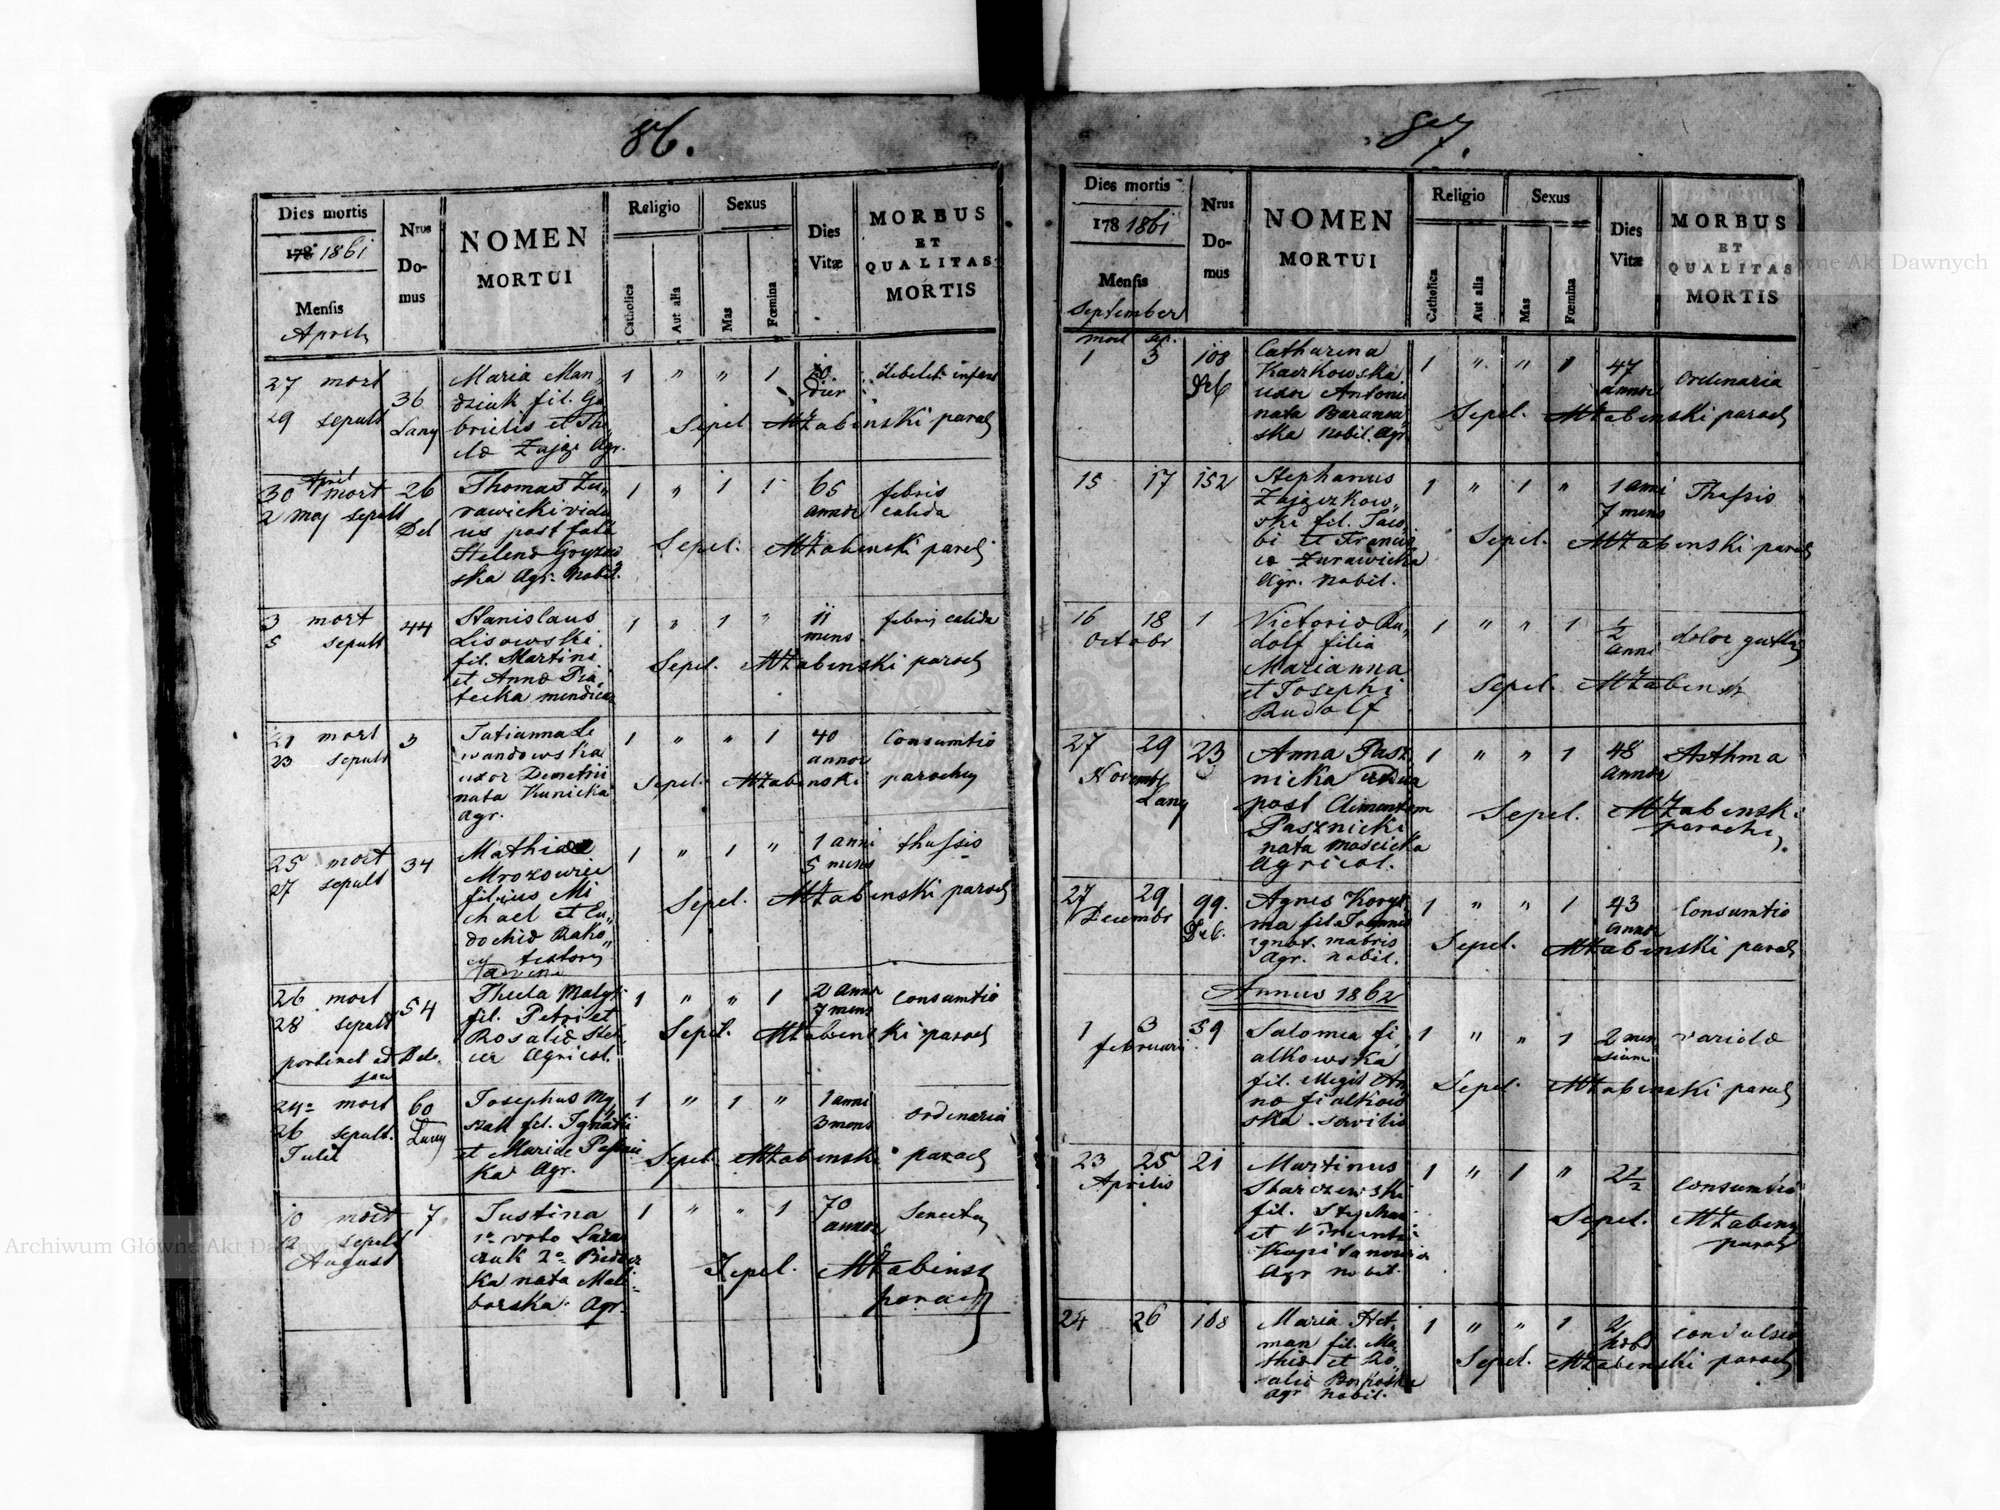 86.
Dies mortis
178 1861
Mensis
Aprili
Nrus
Do-
mus
NOMEN
MORTUI
Religio
Catholica
Aut alia
Sexus
Mas
Fœmina
Dies
Vitæ
MORBUS
ET
QUALITAS
MORTIS
27 mort
29 sepult
36
Lany
Maria Man„
dziuk fil. Ga
brielis et The„
Agr.
1 „ „ 1
10.
dier
debilit. infant
Sepel. MZabinski paroch
30 April mort
2 Maj sepult
26
Del
Thomas Zu„
rawicki vidu
us post
Helena
ska Agr. Nobil.
1 „ 1
65
annor
febris
calida
Sepel. MZabinski paroch
3 mort
5 sepult
44
Stanislaus
Lisowski
fil. Martini
et Anna Pia„
tecka
1 „ 1 „
11
mens
febris calida
Sepel. MZabinski paroch
21 mort
23 sepult
3
Tatianna Le
wandowska
uxor Demetrii
nata Kunicka
Agr.
1 „ „ 1
40
annor
Consumtio
Sepel. MZabinski parochy
25 mort
27 sepult
34
Mathias
Mrozowicz
filius Mi
chael et Eu„
dochia Bako„
1 „ 1 „
1 anni
5 mens
thussis
Sepel. MZabinski paroch
26 mort
28 sepult
pertinet ad
54
Thecla
fil. Petri et
Rosalia
Agricol.
1 „ „ 1
2 annor
7 mens
Consumtio
Sepel. MZabinski paroch
24 mort
26 sepult.
Julii
60
Lany
Josephus My„
szak fil. Ignatii
et Maria de
ka Agr.
1 „ 1 „
1 anni
3 mens
ordinaria
Sepel. MZabinski paroch
10 mort
12 sepult
August
7
Justina
1º voto Laza
ruk 2º
ka nata Mali
borska. Agr.
1 „ „ 1
70
annor
Senectus
Sepel. MZabinski
paroch
87.
Dies mortis
178 1861
Mensis
September
Nrus
Do-
mus
NOMEN
MORTUI
Religio
Catholica
Aut alia
Sexus
Mas
Fœmina
Dies
Vitæ
MORBUS
ET
QUALITAS
MORTIS
mort sep.
1 3
108
Catharina
Kaczkowska
uxor Antonii
nata Baranow
ska Nobil. Agr.
1 „ „ 1
47
annor
ordinaria
Sepel. MZabinski paroch
15 17
152
Stephanus
Zajączkow„
ski fil. Jaco
bi et Francis
ca Zurawicka
Agr. Nobil.
1 „ 1 „
1 anni
7 mens
Thussis
Sepel. MZabinski paroch
16 18
Octobr
1
Victoria Ru„
dolf filia
Marianna
et Josephi
Rudolf
1 „ „ 1
1/2
anni
dolor
Sepel. MZabinski
27 29
Novembr
Lany
23
Anna Pasz
nicka vidua
post Clementem
Pasznicki
nata Moscicka
Agricol.
1 „ „ 1
48
annor
Asthma
Sepel. MZabinski
parochy.
27 29
Decembr
99.
Agnes Koryt
ma fil. Joannis
ignot. matris
Agr. nobil.
1 „ „ 1
43
annor
Consumtio
Sepel. MZabinski paroch
Annus 1862
1 3
februarii
39
Salomea fi
alkowska
fil. illegit An
na fialkow
ska servilis
1 „ „ 1
2 men
sium
variola
Sepel. MZabinski paroch
23 25
Aprilis
21
Martinus
Starczewski
fil.
et Vincentia
Kapitanowicz
Agr nobil.
1 „ 1 „
2 1/2
Consumtio
Sepel. MZabins
paroch
24 26
108
Maria Het„
man fil. Ma„
thia et Ro„
salia
Agr nobil.
1 „ „ 1
2
hebd
Convulsio
Sepel. MZabinski paroch
Archiwum Główne Akt Dawnych
Archiwum Główne Akt Dawnych